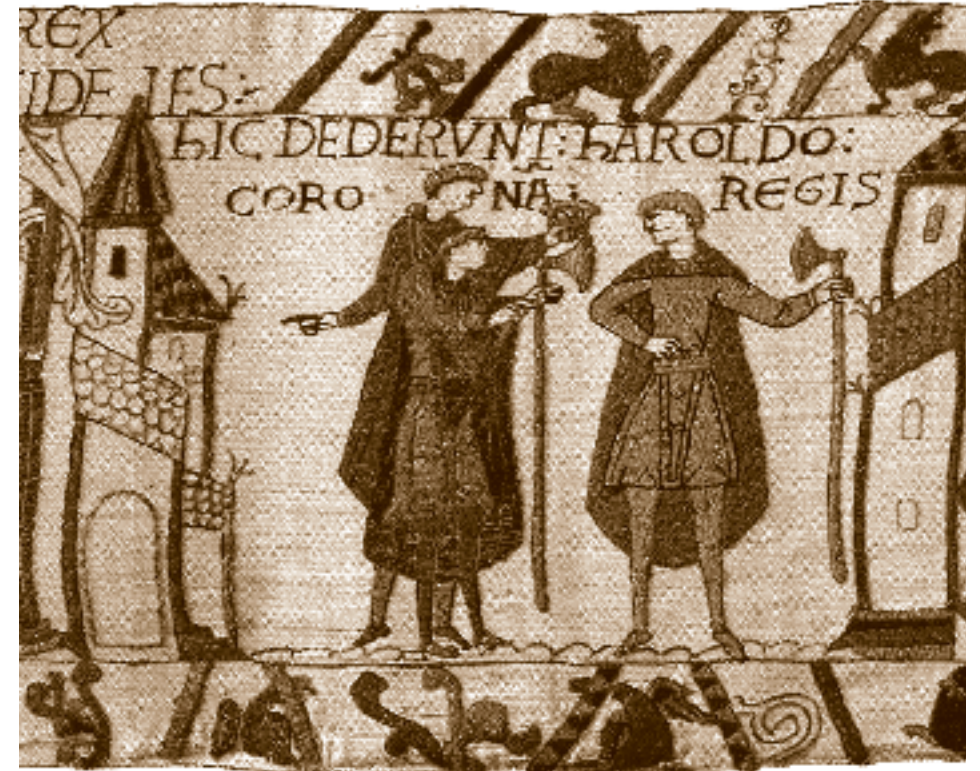 REX
IDE IES:
hIC DEDERVNT: hAROLDO:
CORONA: REGIS